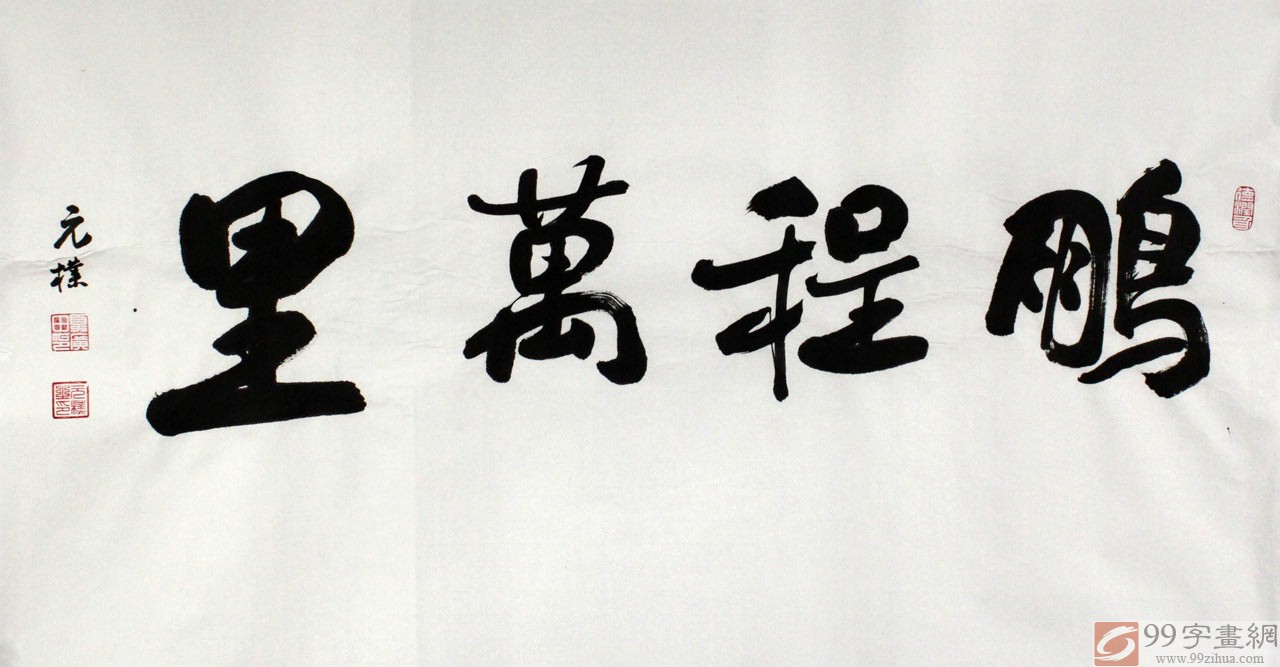 鵬程萬里
元樸
99字畫網
www.99zihua.com